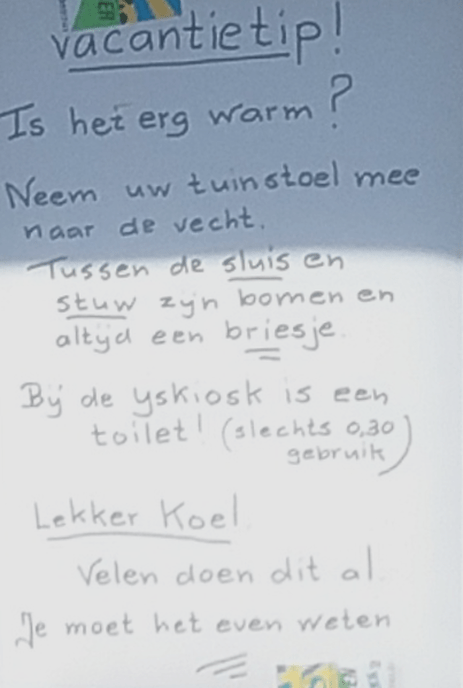 vacantietip!
Is het erg warm?
Neem uw tuinstoel mee
naar de vecht.
Tussen de sluis en
stuw zyn bomen en
altyd een briesje.
Bij de yskiosk is een
toilet! (slechts 0,30
gebruik)
Lekker Koel.
Velen doen dit al.
Je moet het even weten